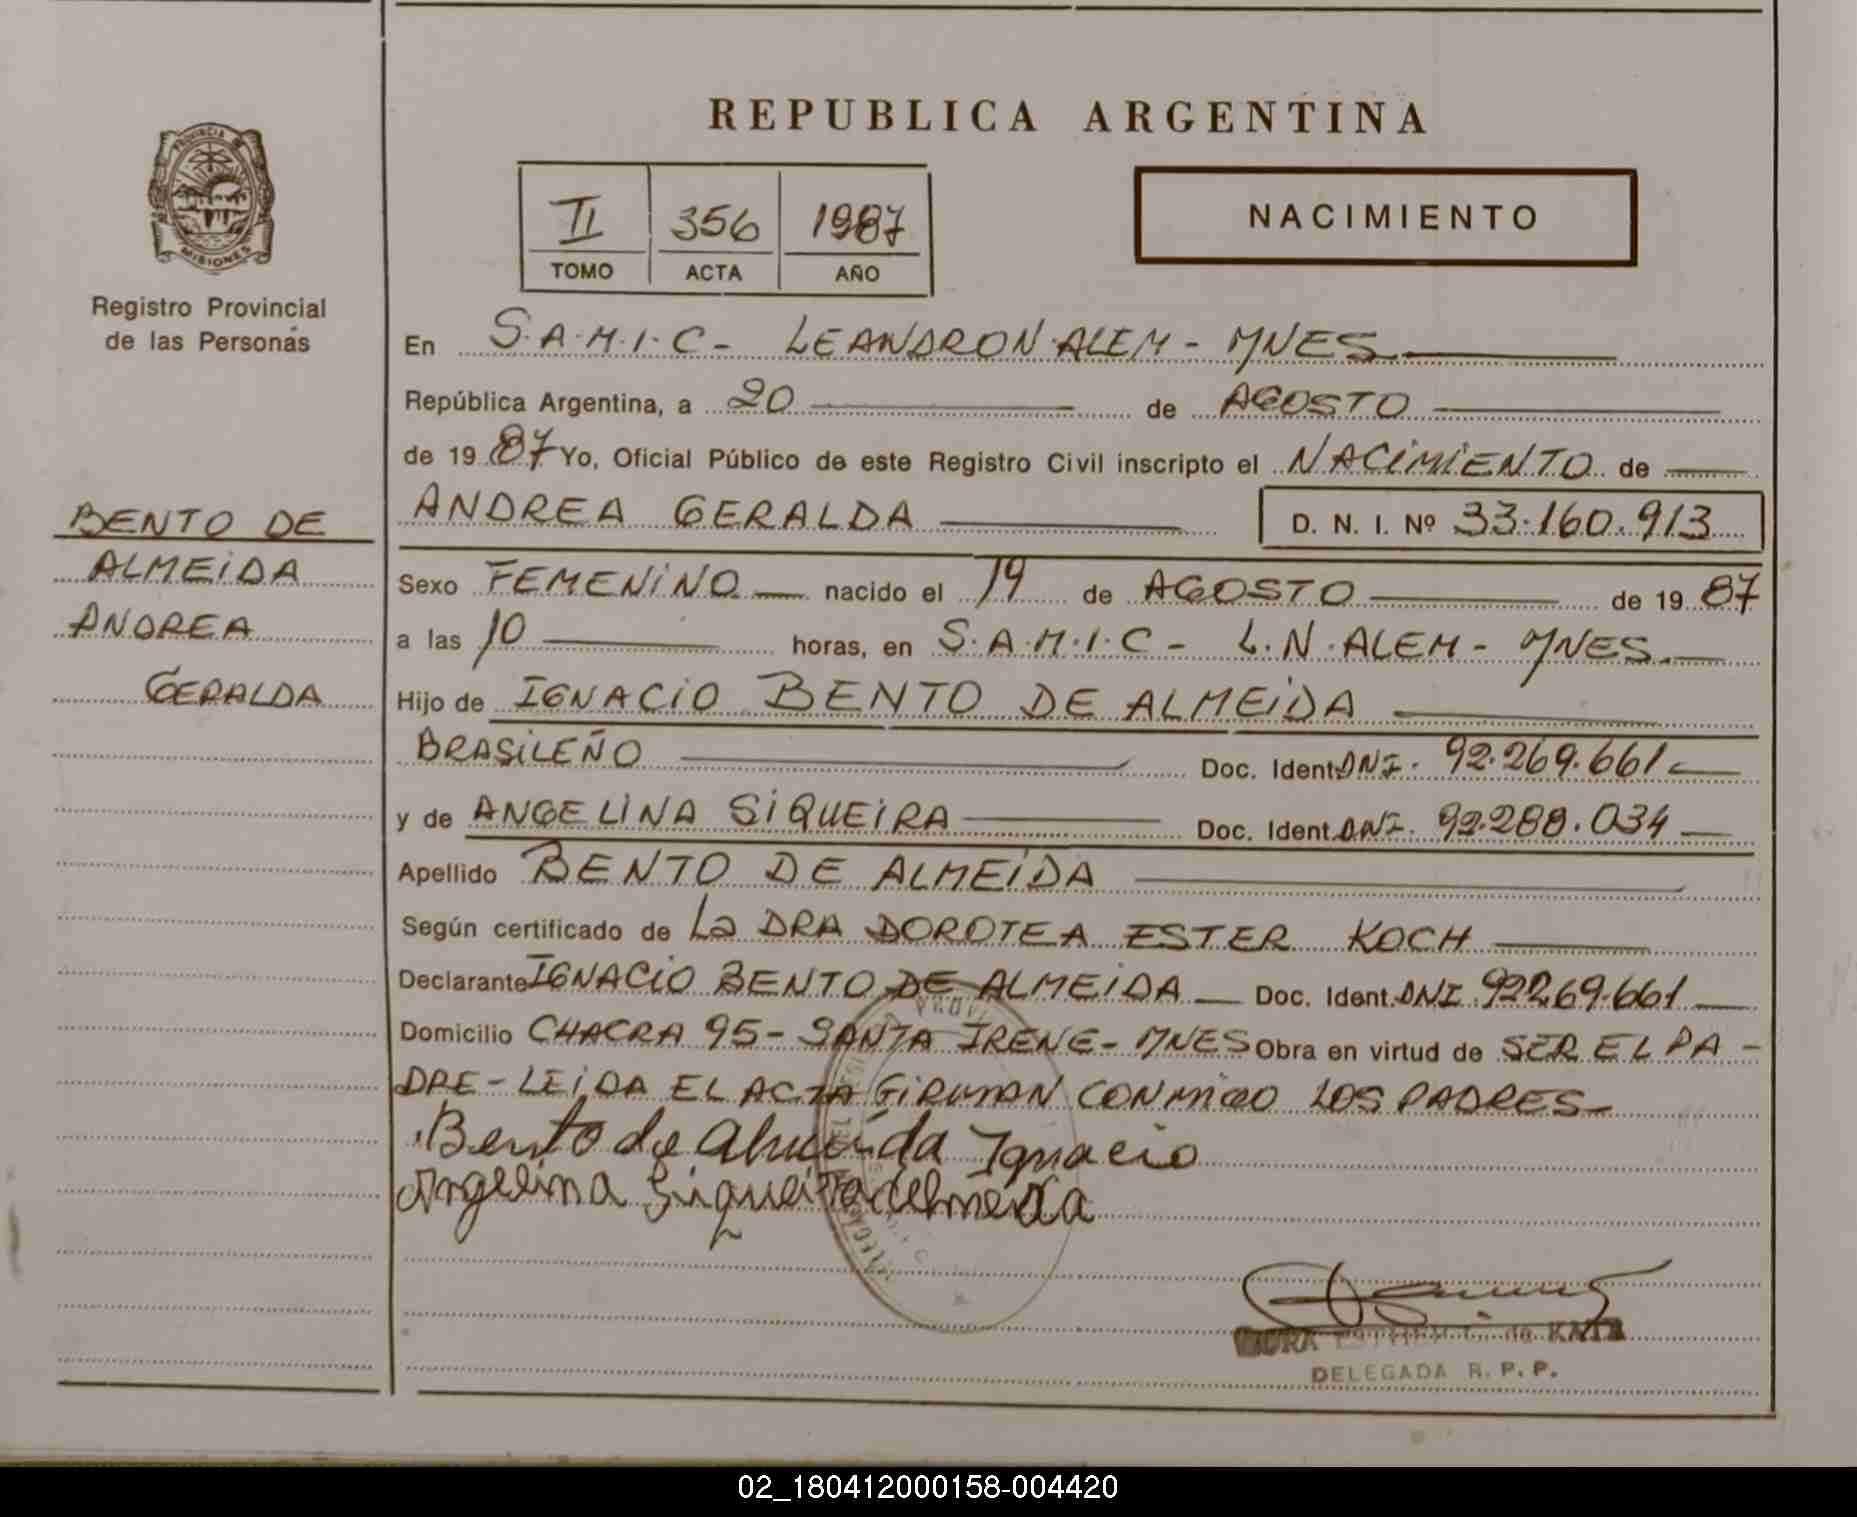 REPUBLICA ARGENTINA
PROVINCIA DE
MISIONES
Registro Provincial
de las Personas
II 356 1987
TOMO ACTA AÑO
NACIMIENTO
En S.A.M.I.C - LEANDRO N. ALEM - MNES
República Argentina, a 20 de AGOSTO
de 1987 Yo, Oficial Público de este Registro Civil inscripto el NACIMIENTO de
ANDREA GERALDA D. N. I. Nº 33.160.913
BENTO DE
ALMEIDA
ANDREA
GERALDA
Sexo FEMENINO nacido el 19 de AGOSTO de 1987
a las 10 horas, en S.A.M.I.C - L.N. ALEM - MNES.
Hijo de IGNACIO BENTO DE ALMEIDA
BRASILEÑO Doc. Ident. DNI. 92.269.661
y de ANGELINA SIQUEIRA Doc. Ident. DNI. 92.288.034
Apellido BENTO DE ALMEIDA
Según certificado de La DRA DOROTEA ESTER KOCH
Declarante IGNACIO BENTO DE ALMEIDA Doc. Ident. DNI 92269.661
Domicilio CHACRA 95 - SANTA IRENE - MNES Obra en virtud de SER EL PA-
DRE - LEIDA EL ACTA FIRMAN CONMIGO LOS PADRES
Bento de Almeida Ignacio
Angelina Siqueira Almeida
de KATZ
DELEGADA R. P. P.
02_180412000158-004420